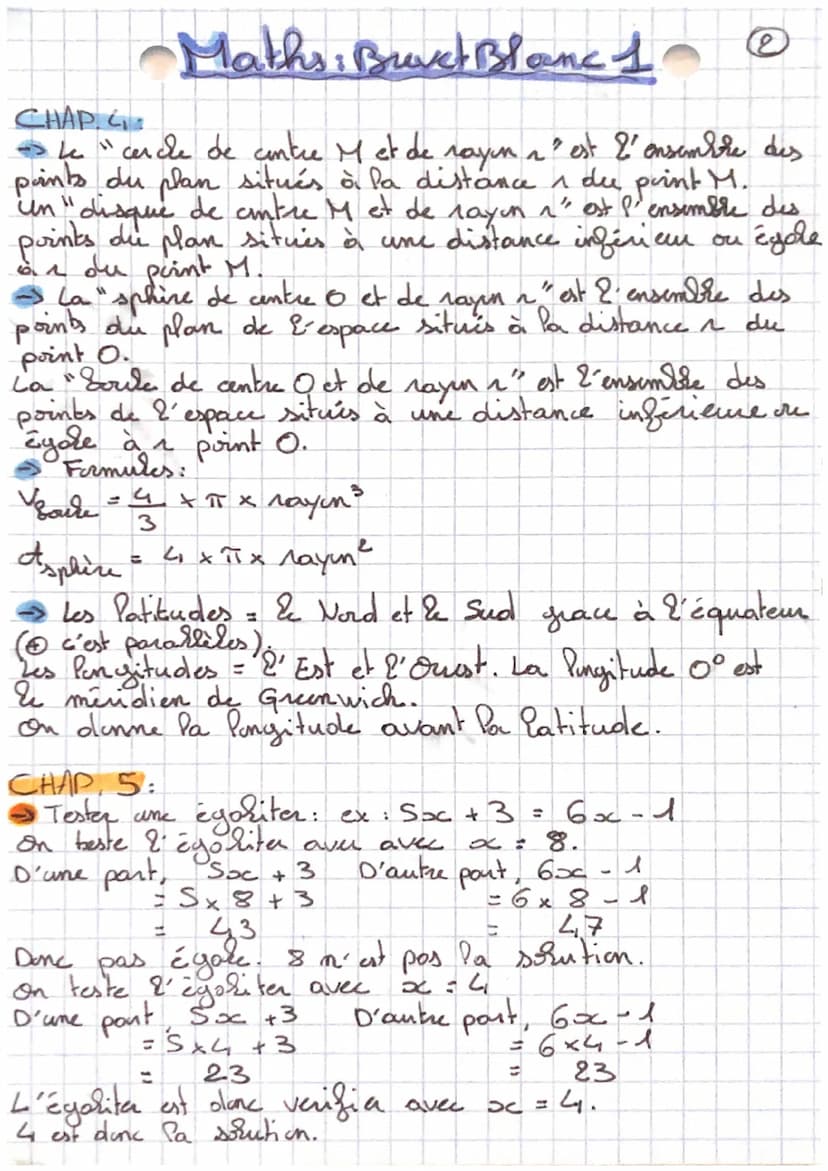 Maths : Brevet Blanc 1
2
CHAP. 4 :
→ Le "cercle de centre M et de rayon r" est l'ensemble des
points du plan situés à la distance r du point M.
Un "disque de centre M et de rayon r" est l'ensemble des
points du plan situés à une distance inférieur ou égale
à r du point M.
→ La "sphère de centre O et de rayon r" est l'ensemble des
points du plan de l'espace situés à la distance r du
point O.
La "boule de centre O et de rayon r" est l'ensemble des
points de l'espace situés à une distance inférieure ou
égale à r point O.
→ Formules :
Vboule = 4/3 × π × rayon³
Asphère = 4 × π × rayon²
→ Les latitudes = le Nord et le Sud grace à l'équateur
(⊕ c'est parallèles).
Les longitudes = l'Est et l'Ouest. La longitude 0° est
le méridien de Greenwich.
On donne la longitude avant la latitude.
CHAP. 5 :
→ Tester une égaliter : ex : 5x + 3 = 6x - 1
On teste l'égaliter avec avec x = 8.
D'une part, 5x + 3 D'autre part, 6x - 1
= 5 × 8 + 3 = 6 × 8 - 1
= 43 = 47
Donc pas égale. 8 n'est pas la solution.
On teste l'égaliter avec x = 4
D'une part, 5x + 3 D'autre part, 6x - 1
= 5 × 4 + 3 = 6 × 4 - 1
= 23 = 23
L'égaliter est donc verifier avec x = 4.
4 est donc la solution.